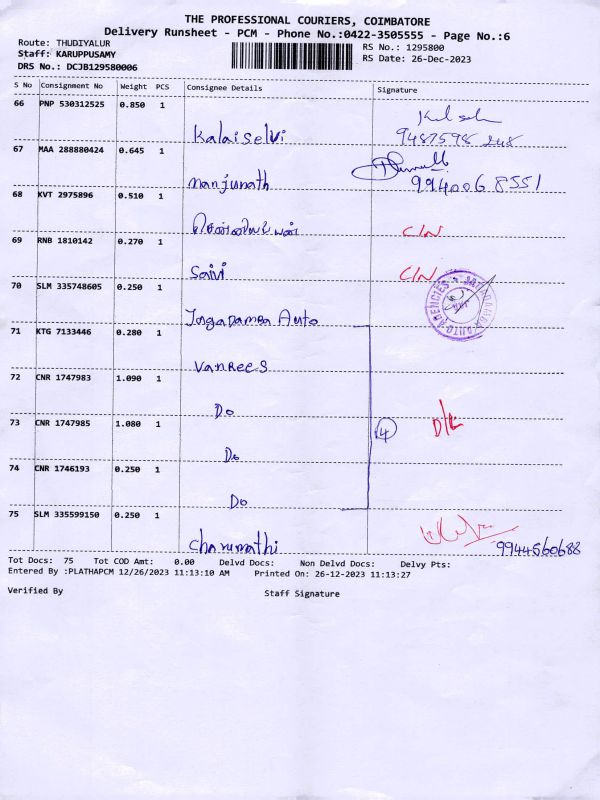 THE PROFESSIONAL COURIERS, COIMBATORE
Delivery Runsheet - PCM - Phone No.:0422-3505555 - Page No.:6
Route: THUDIYALUR
Staff: KARUPPUSAMY
DRS No.: DCJB129580006
RS No.: 1295800
RS Date: 26-Dec-2023
S No Consignment No Weight PCS Consignee Details Signature
66 PNP 530312525 0.850 1
Kalaiselvi
67 MAA 288880424 0.645 1
Manjunath 994006 8551
68 KVT 2975896 0.510 1
C/N
69 RNB 1810142 0.270 1
Saivi C/N
70 SLM 335748605 0.250 1
Jagadamba Auto
71 KTG 7133446 0.280 1
VanRees
72 CNR 1747983 1.090 1
Do
73 CNR 1747985 1.080 1
Do 4 D/L
74 CNR 1746193 0.250 1
Do
75 SLM 335599150 0.250 1
Charumathi
Tot Docs: 75 Tot COD Amt: 0.00 Delvd Docs: Non Delvd Docs: Delvy Pts:
Entered By :PLATHAPCM 12/26/2023 11:13:10 AM Printed On: 26-12-2023 11:13:27
Verified By Staff Signature